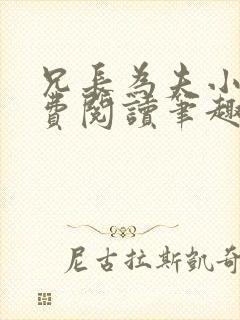 兄長為夫小
費閱讀筆趣
尼古拉斯凱奇